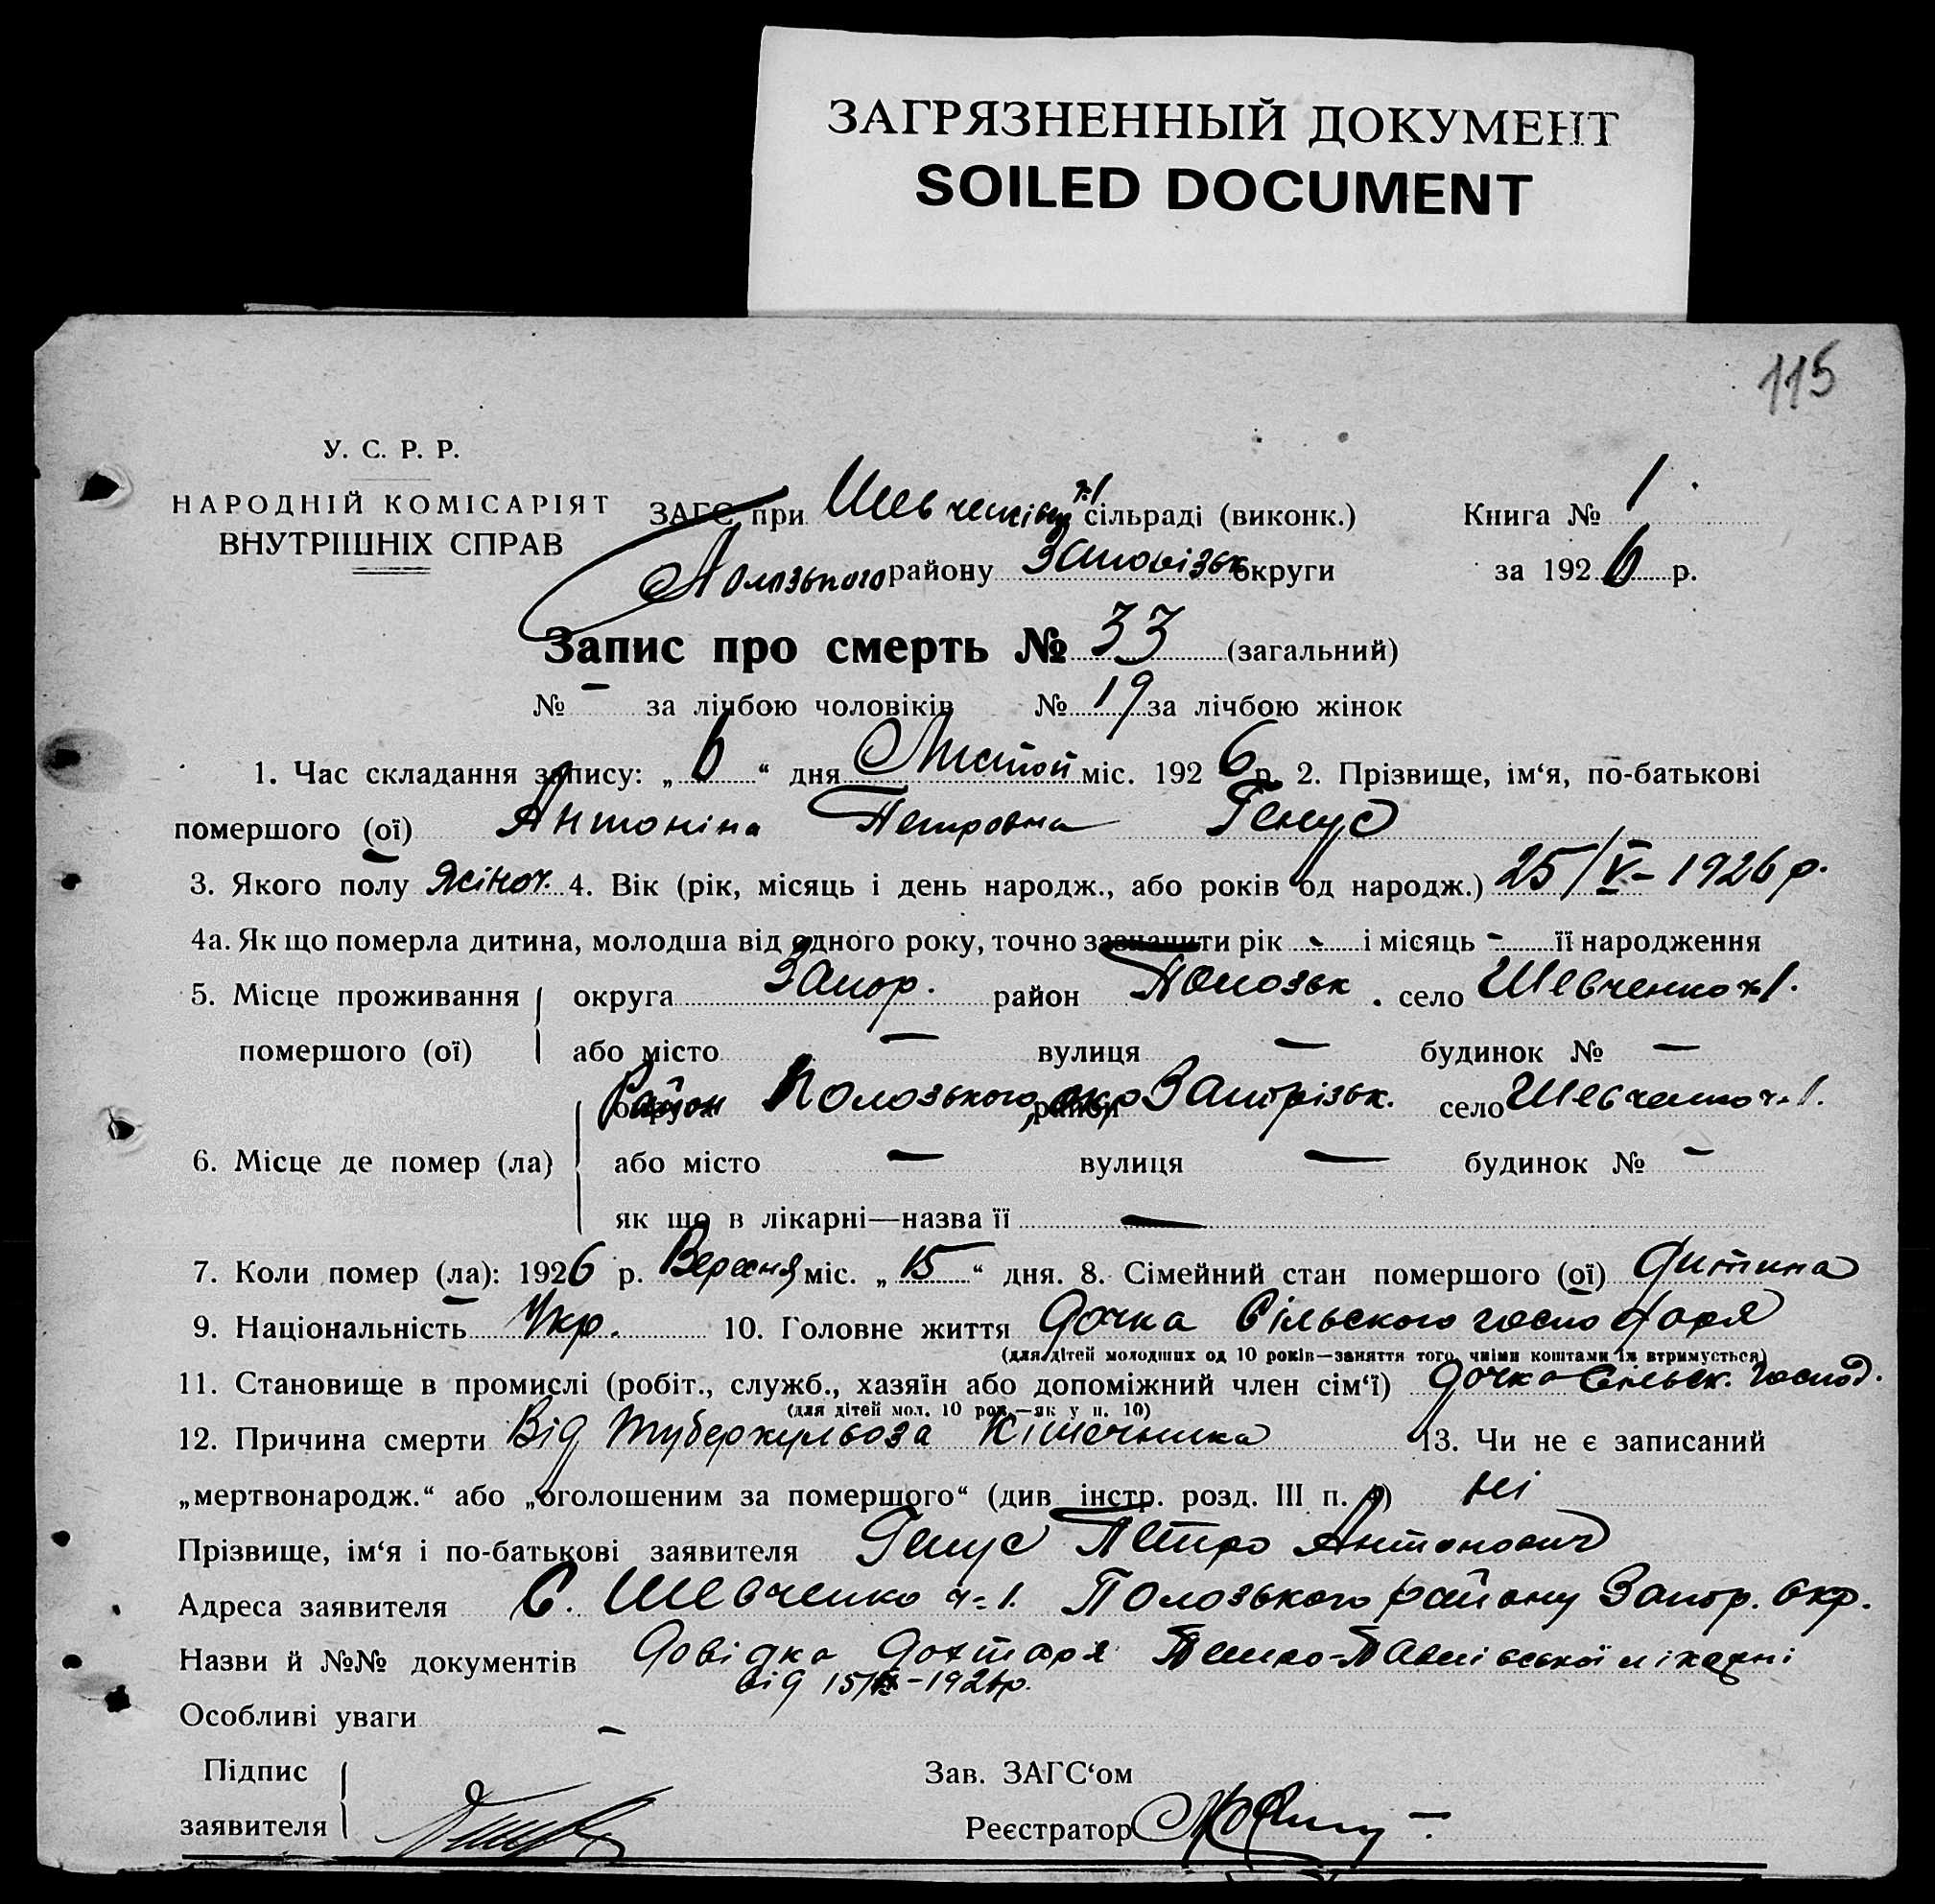 ЗАГРЯЗНЕННЫЙ ДОКУМЕНТ
SOILED DOCUMENT
115
У. С. Р. Р.
НАРОДНІЙ КОМІСАРІЯТ
ВНУТРІШНІХ СПРАВ
ЗАГС при Шевченківск. ч.1 сільраді (виконк.) Книга № 1
Полозького району округи за 1926 р.
Запис про смерть № 33 (загальний)
№ – за лічбою чоловіків № 19 за лічбою жінок
1. Час складання запису: „ 6 “ дня Листоп міс. 1926 р. 2. Прізвище, ім‘я, по-батькові
помершого (ої) Антоніна Петровна Генус
3. Якого полу жіноч. 4. Вік (рік, місяць і день народж., або років од народж.) 25/V – 1926 р.
4а. Як що померла дитина, молодша від одного року, точно зазначити рік - і місяць - її народження
5. Місце проживання округа Запор. район Полозьк. село Шевченко ч.1.
помершого (ої) або місто — вулиця — будинок № —
Район Полозького, окр. село Шевченко ч.1.
6. Місце де помер (ла) або місто — вулиця — будинок № –
як що в лікарні—назва її —
7. Коли помер (ла): 1926 р. Вересня міс. „ 15 “ дня. 8. Сімейний стан помершого (ої) дитина
9. Національність Укр. 10. Головне життя дочка Сільского господаря
(для дітей молодших од 10 років—заняття того, чиїми коштами їх втримується)
11. Становище в промислі (робіт., служб., хазяїн або допоміжний член сім‘ї) дочка Сільск. господ.
(для дітей мол. 10 рок.—як у п. 10)
12. Причина смерти Від туберкульоза Кішечника 13. Чи не є записаний
„мертвонародж.“ або „оголошеним за помершого“ (див інстр. розд. III п. ) ні
Прізвище, ім‘я і по-батькові заявителя Генус Петро Антонович
Адреса заявителя С. Шевченко ч. 1. Полозького району Запор. окр.
Назви й №№ документів Довідка Дохтаря Петро-Павлівської лікарні
від 15/IX – 1926 р.
Особливі уваги –
Підпис Зав. ЗАГС‘ом
заявителя Реєстратор